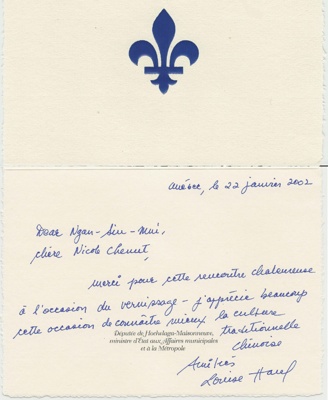 Québec, le 22 janvier 2002
Dear Ngan-Siu-Mui,
chère Nicole Chenut,
merci pour cette rencontre chaleureuse
à l'occasion du vernissage - j'apprécie beaucoup
cette occasion de connaître mieux la culture
traditionnelle
chinoise
Députée de Hochelaga-Maisonneuve,
ministre d'État aux Affaires municipales
et à la Métropole
Amitiés
Louise Harel